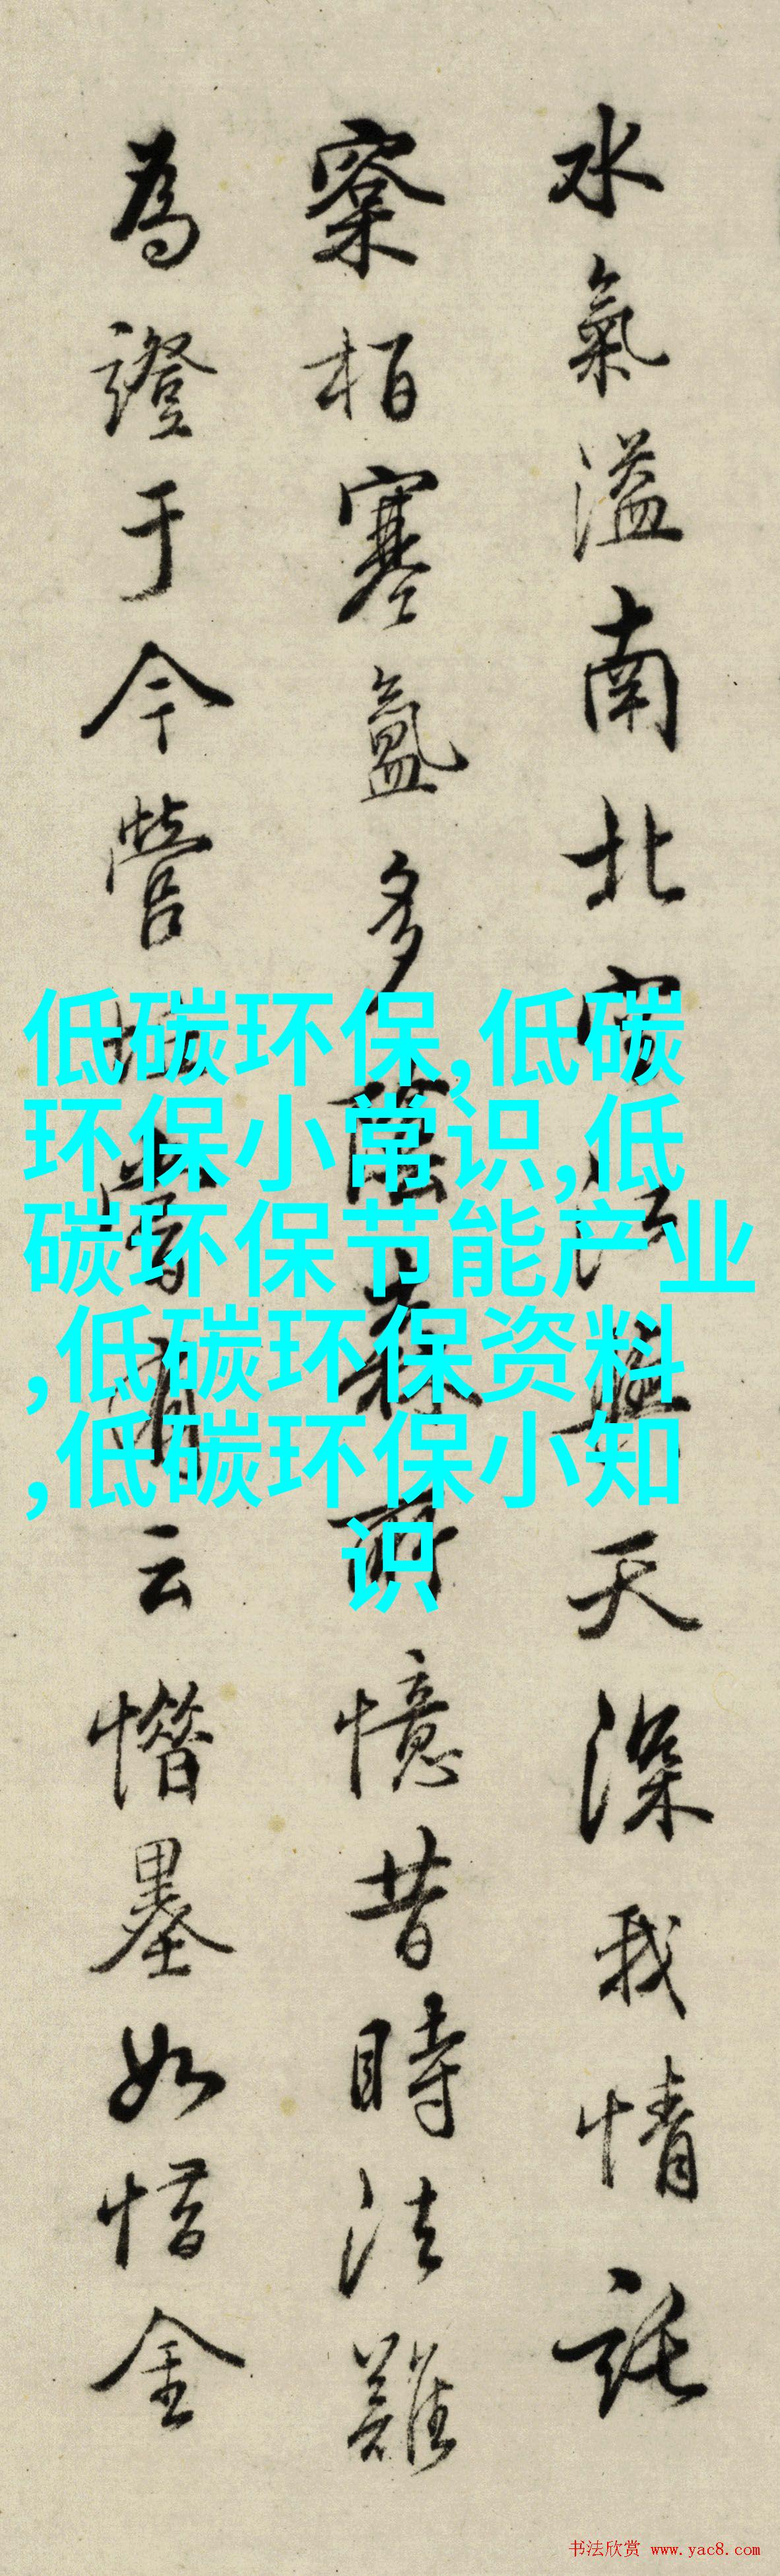 水氣溢南北 天深我情託
寀栢塞氳多 憶昔時法難
為證于今營 云惜墨如惜金
低碳环保,低碳
环保小常识,低
碳环保节能产业
,低碳环保资料
,低碳环保小知
识
书法欣赏 www.yac8.com